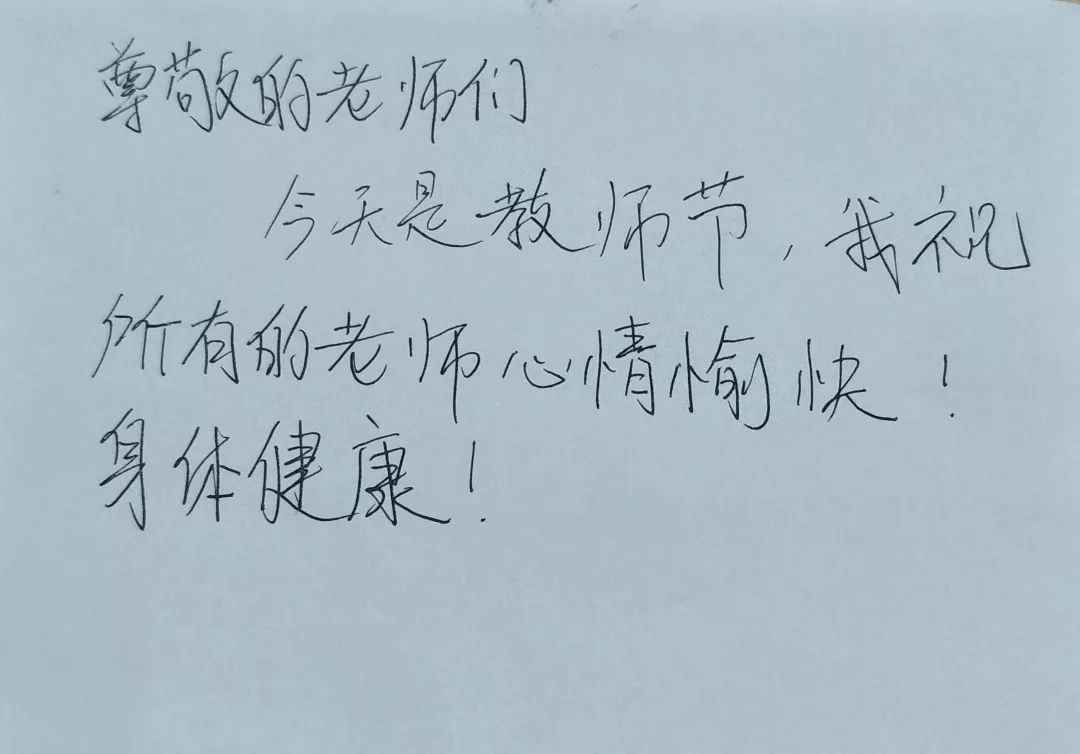 尊敬的老师们
今天是教师节,我祝
所有的老师心情愉快!
身体健康!